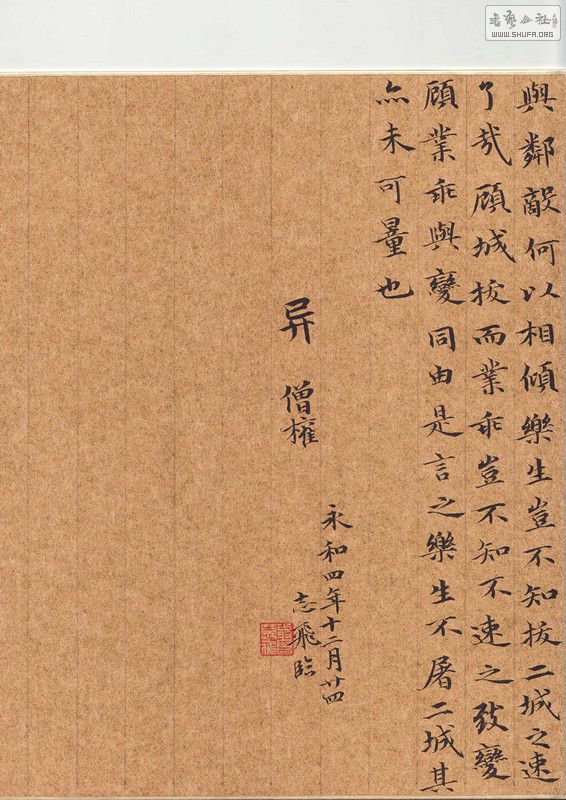 與鄰敵何以相傾樂生豈不知拔二城之速
了哉顧城拔而業乖豈不知不速之致變
顧業乖與變同由是言之樂生不屠二城其
亦未可量也
永和四年十二月廿四
异 僧權
志飛臨
書藝公社
WWW.SHUFA.ORG